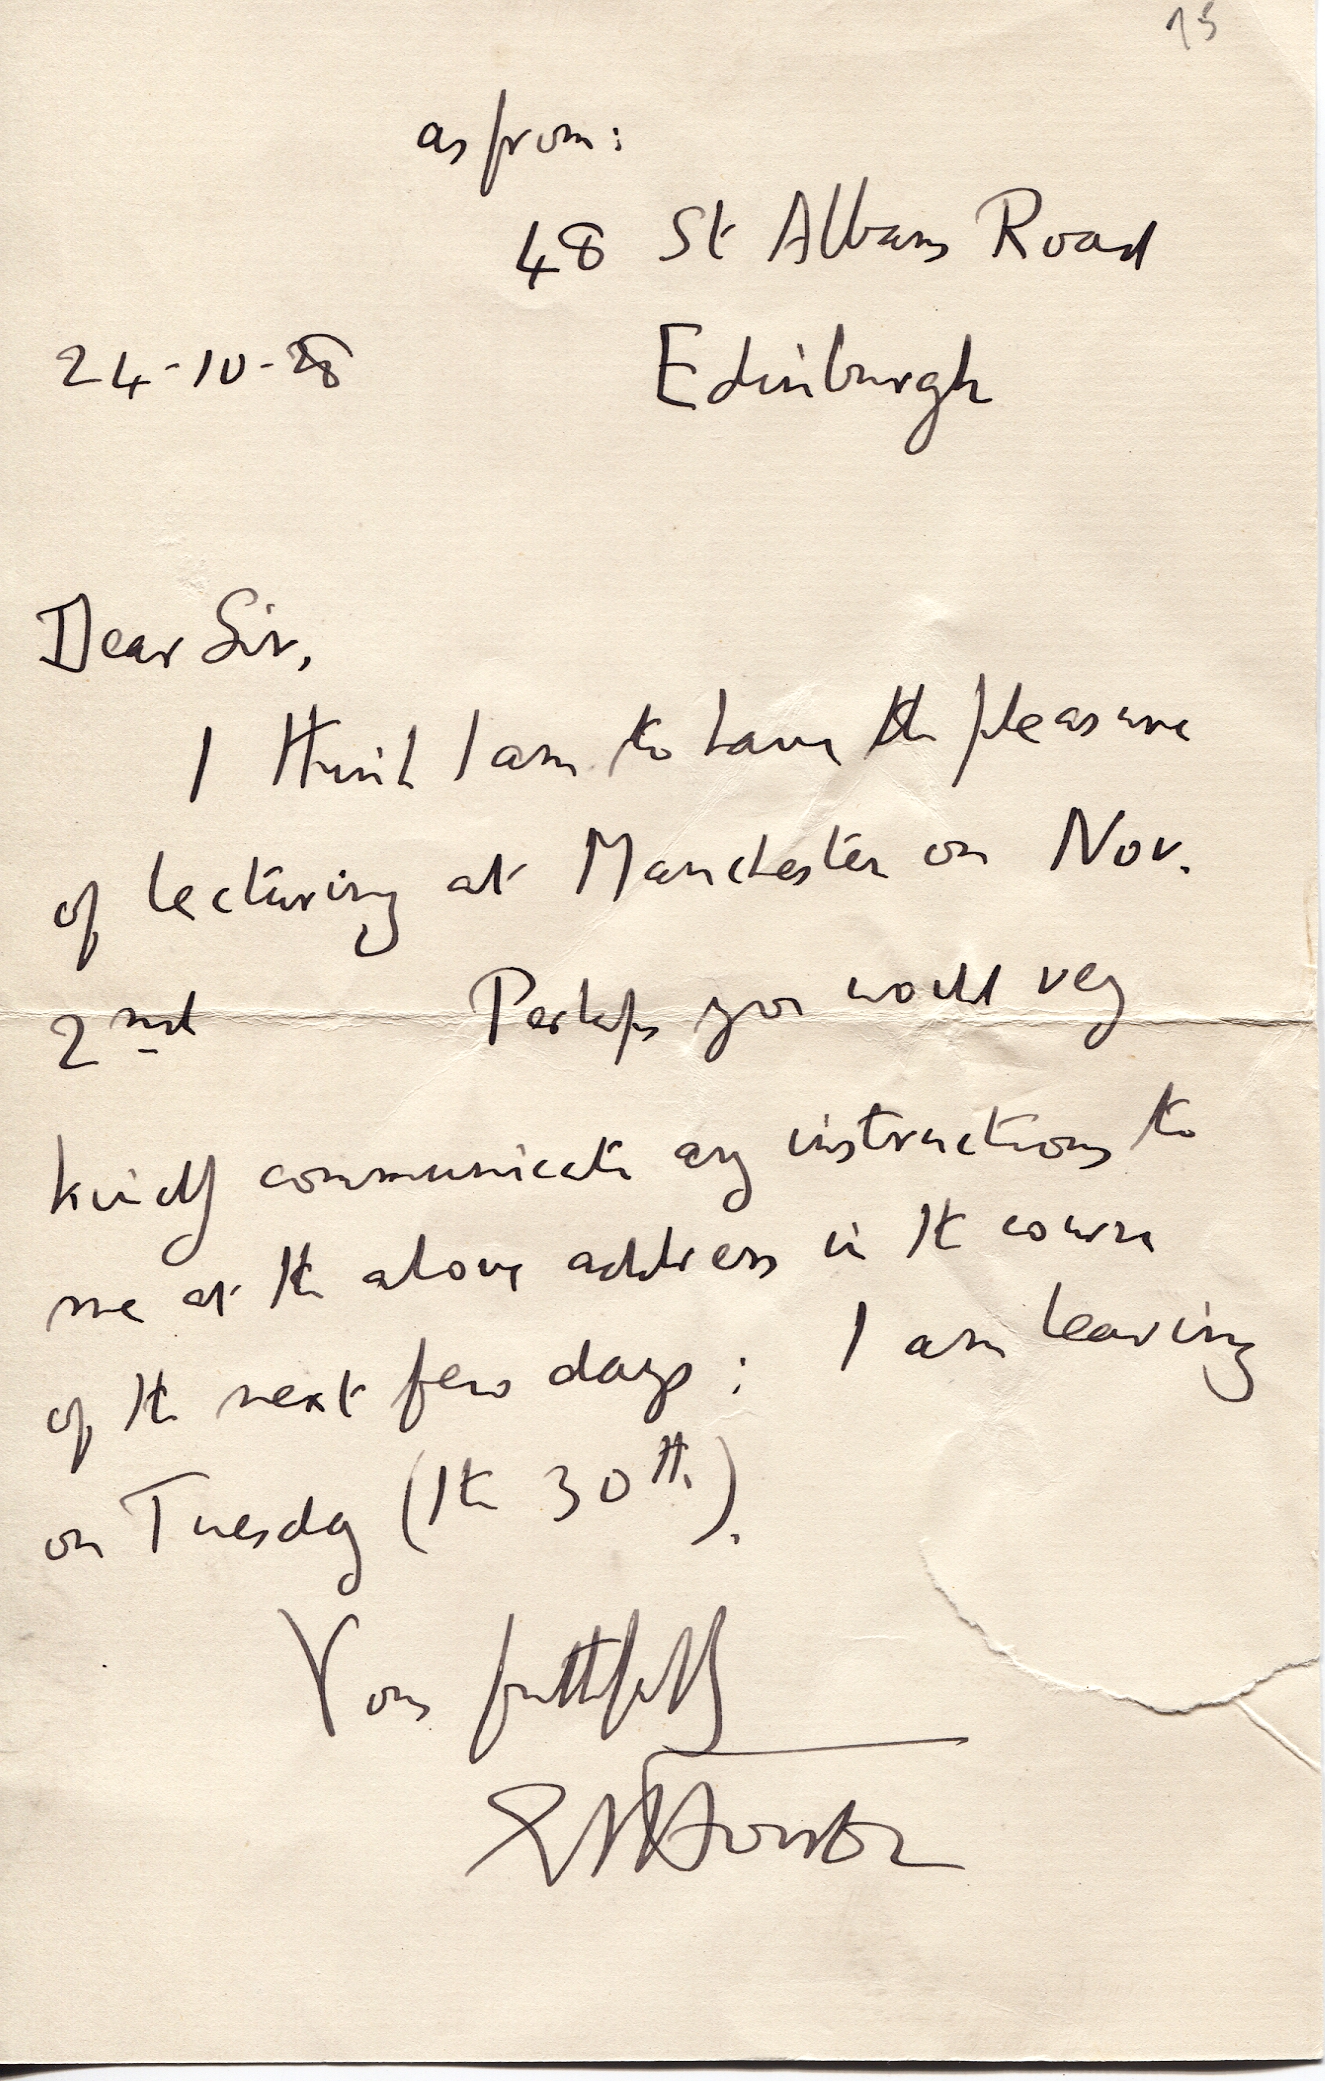 15
as from:
48 St Albans Road
24-10-28 Edinburgh
Dear Sir,
I think I am to have the pleasure
of lecturing at Manchester on Nov.
2nd Perhaps you would very
kindly communicate any instructions to
me at the above address in the course
of the next few days : I am leaving
on Tuesday (the 30th).
Yours faithfully
EMForster